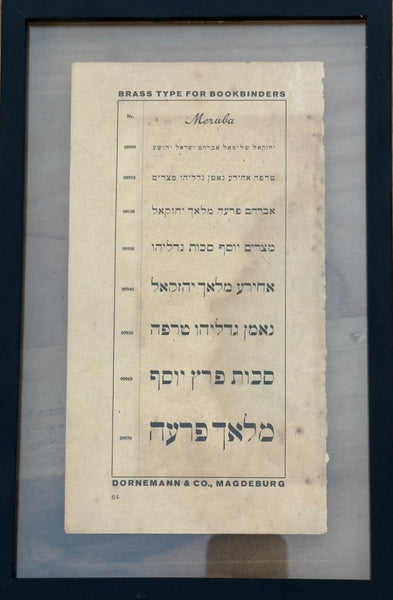 BRASS TYPE FOR BOOKBINDERS
Nr. Meruba
09900 יחזקאל שלימאל אברהם ישראל יהושע
09910 טרפה אחירע נאמן גדליהו מצרים
09920 אברהם פרעה מלאך יחזקאל
09930 מצרים יוסף סכות גדליהו
09940 אחירע מלאך יחזקאל
09950 נאמן גדליהו טרפה
09960 סכות פרץ יוסף
09970 מלאך פרעה
DORNEMANN & CO., MAGDEBURG
64